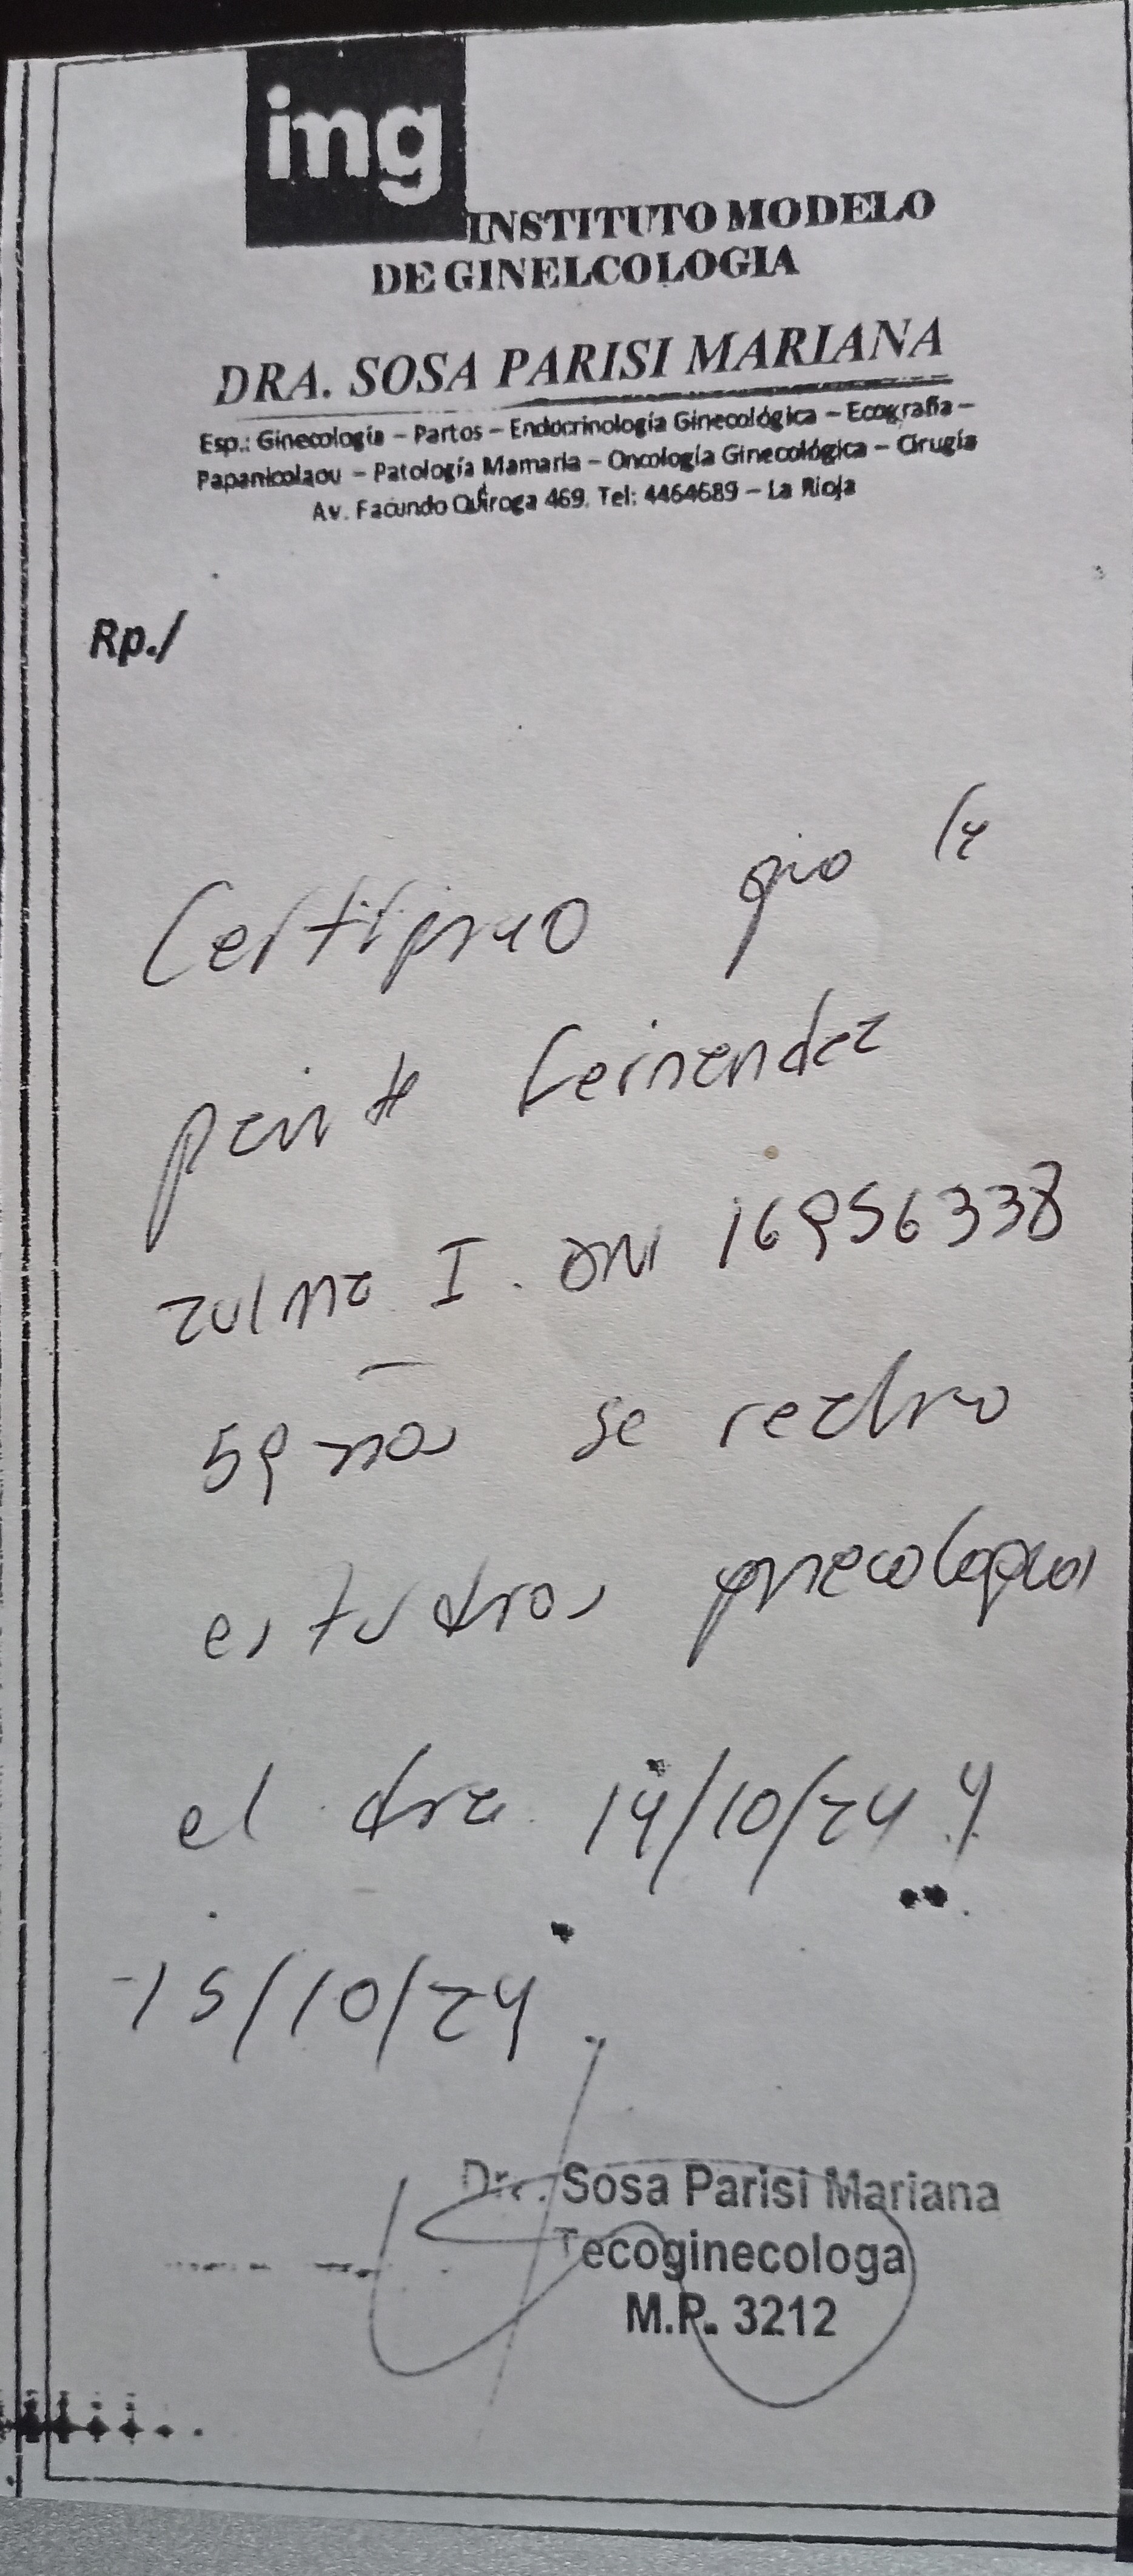 img
INSTITUTO MODELO
DE GINELCOLOGIA
DRA. SOSA PARISI MARIANA
Esp.: Ginecología – Partos – Endocrinología Ginecológica – Ecografía –
Papanicolaou – Patología Mamaria – Oncología Ginecológica – Cirugía
Av. Facundo Quiroga 469. Tel: 4464689 – La Rioja
Rp./
Certifico que la
pcnte Fernandez
Zulma I. DNI 16956338
59 años se realizo
estudios ginecologicos
el dia 14/10/24 y
15/10/24.
Dra. Sosa Parisi Mariana
Tecoginecologa
M.P. 3212